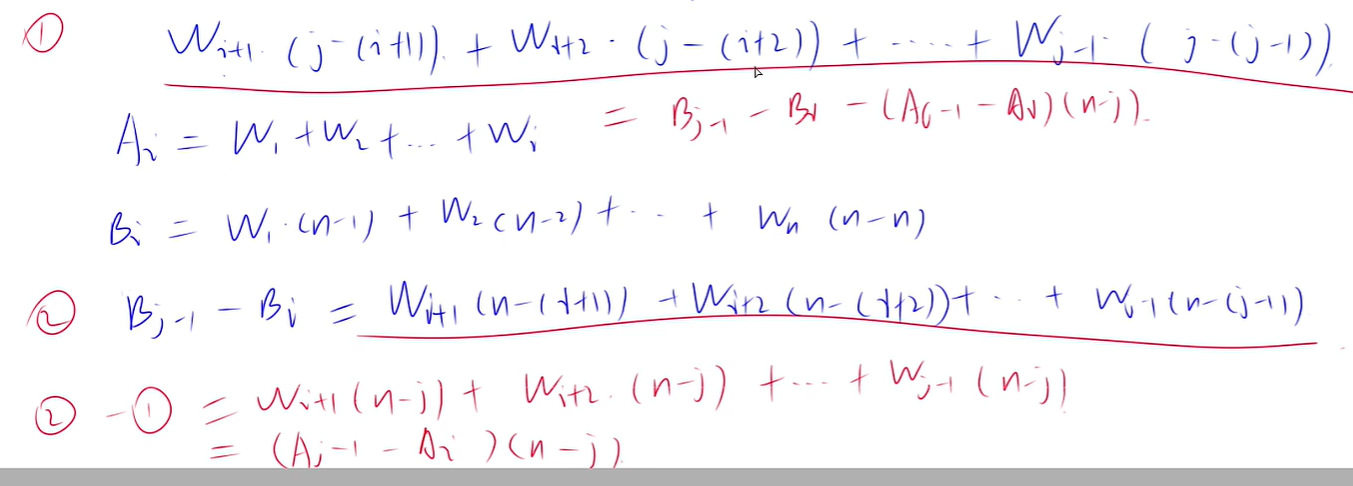 ① W_{i+1}·(j-(i+1)) + W_{i+2}·(j-(i+2)) + ····· + W_{j-1}·(j-(j-1))
A_i = W_1 + W_2 + ... + W_i = B_{j-1} - B_i - (A_{j-1} - A_i)(n-j).
B_i = W_1·(n-1) + W_2(n-2) + ··· + W_n(n-n)
② B_{j-1} - B_i = W_{i+1}(n-(i+1)) + W_{i+2}(n-(i+2)) + ··· + W_{j-1}(n-(j-1))
② - ① = W_{i+1}(n-j) + W_{i+2}·(n-j) + ··· + W_{j-1}(n-j)
= (A_{j-1} - A_i)(n-j)